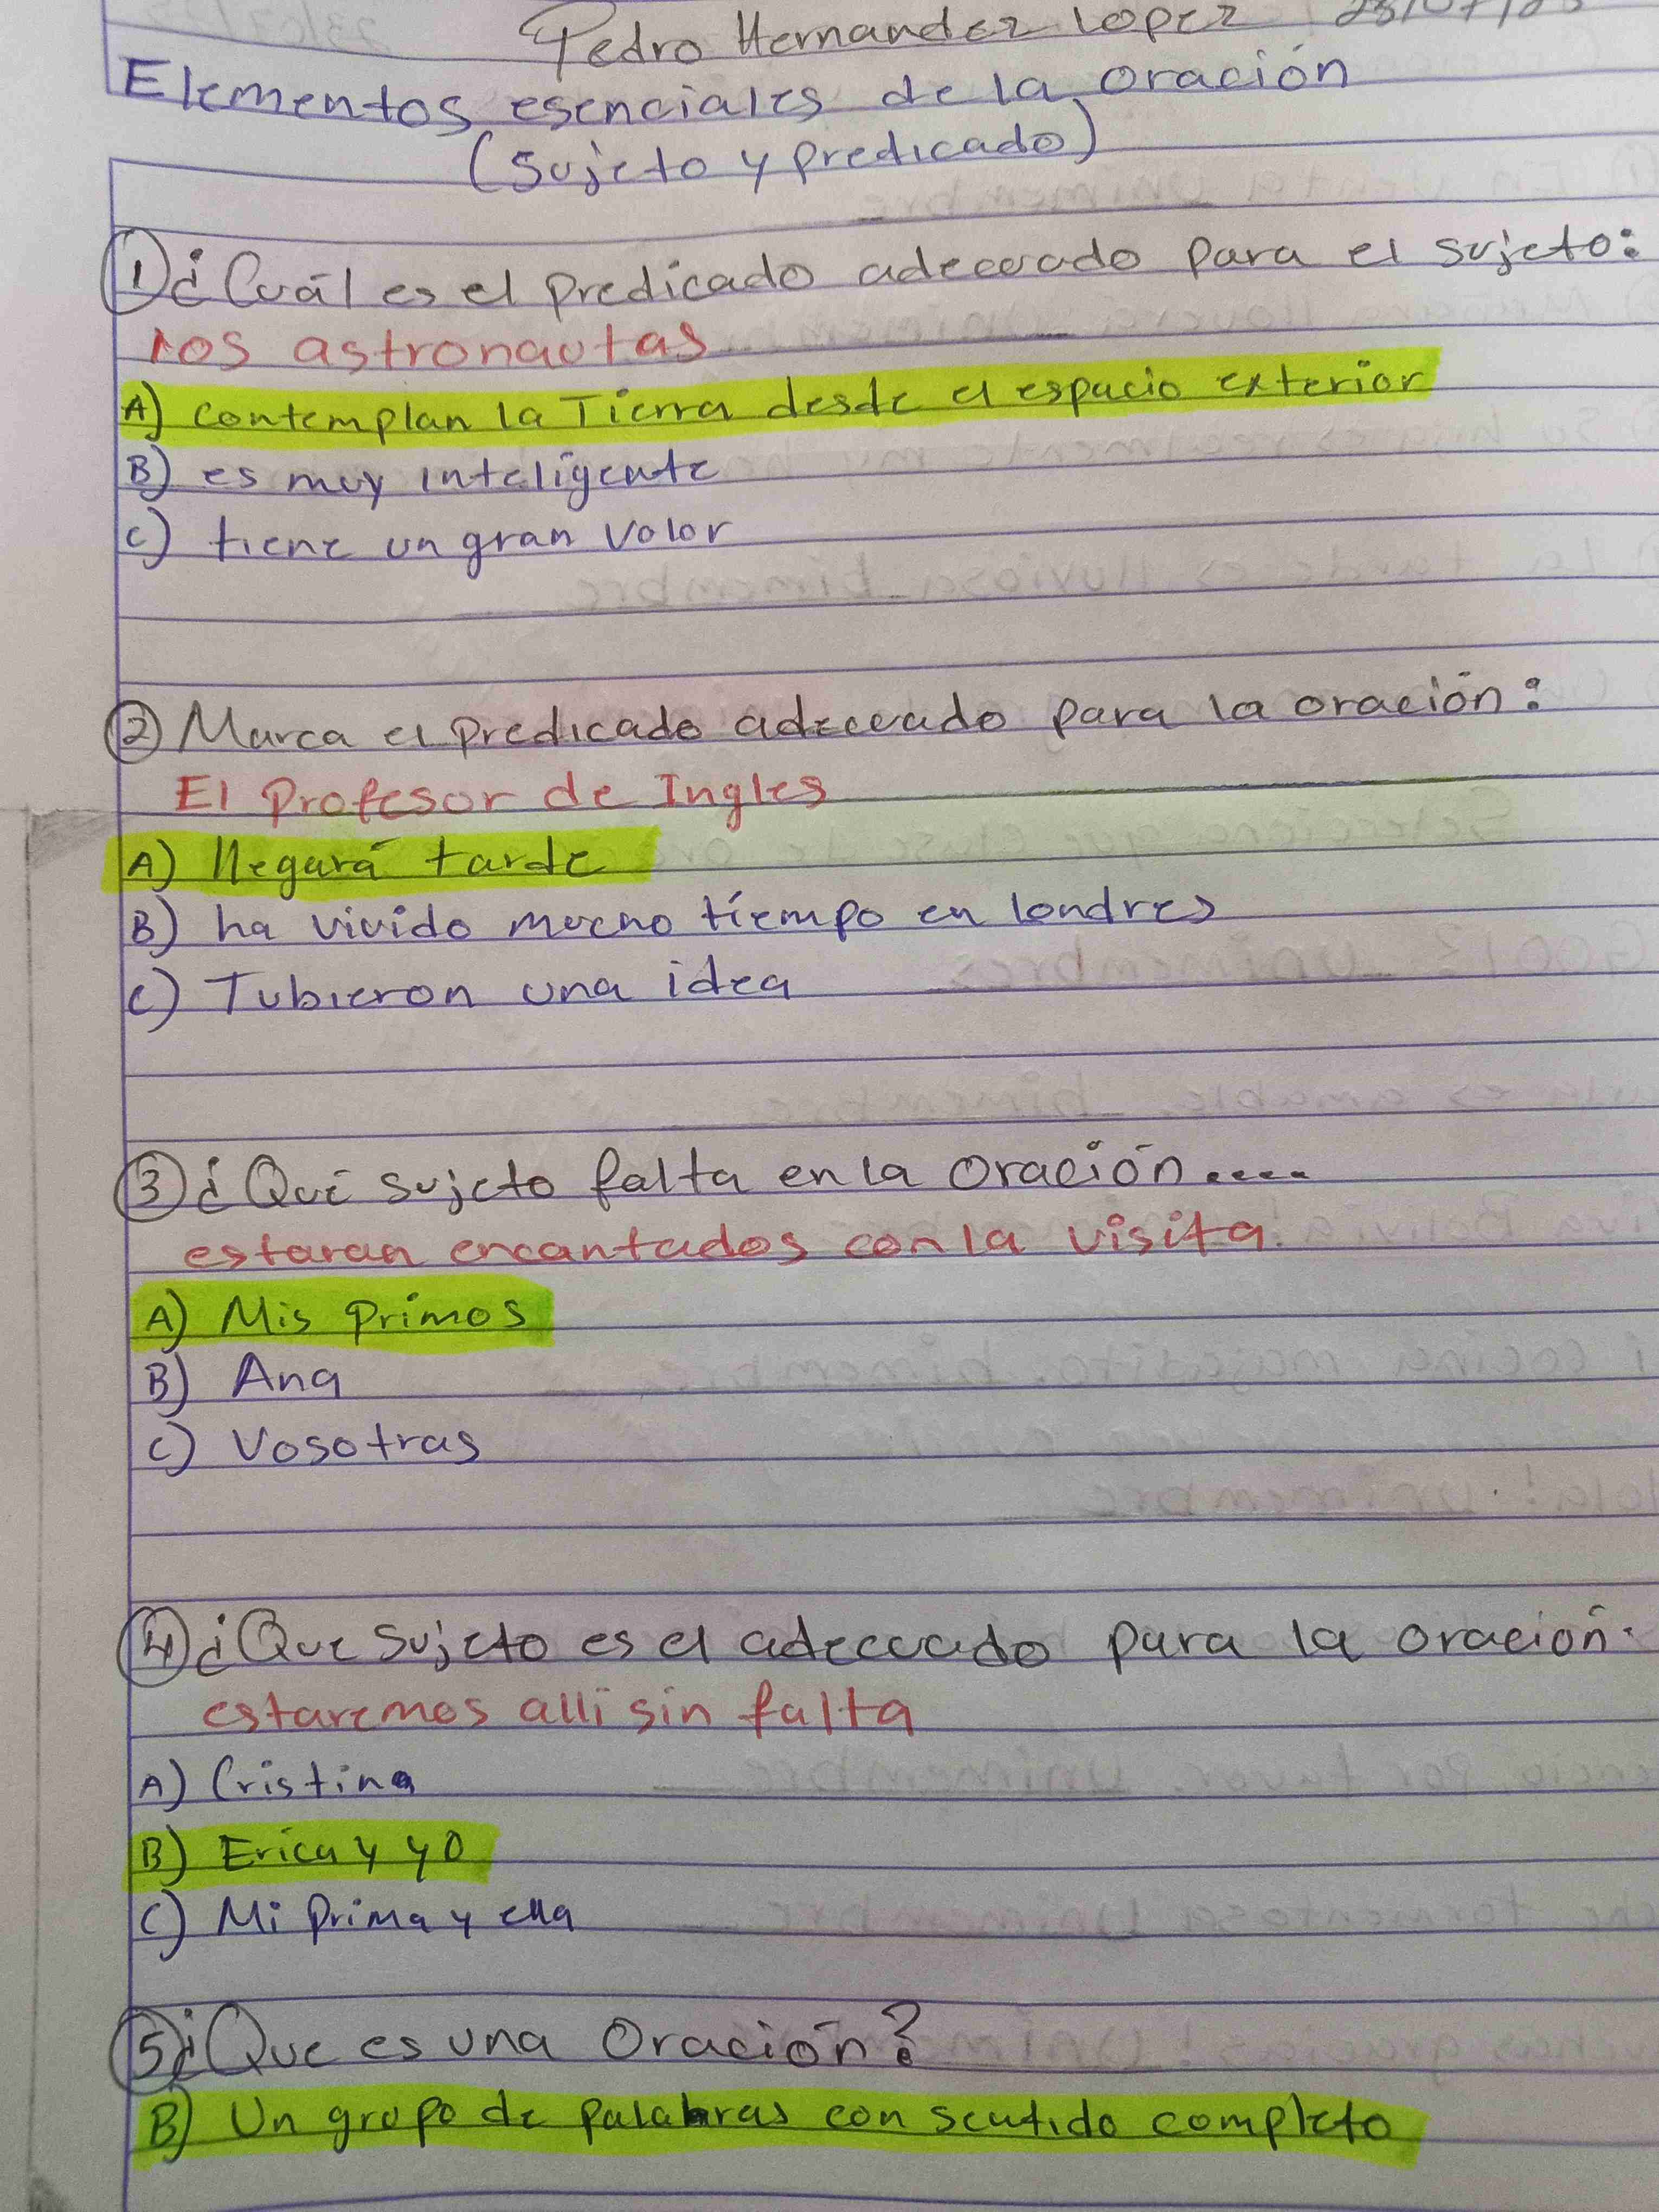 Pedro Hernandez Lopez
Elementos esenciales de la oración
(Sujeto y predicado)
1) ¿Cuál es el predicado adecuado para el sujeto:
los astronautas
A) contemplan la Tierra desde el espacio exterior
B) es muy inteligente
C) tiene un gran valor
2) Marca el predicado adecuado para la oración:
El Profesor de Ingles
A) llegará tarde
B) ha vivido mucho tiempo en londres
C) Tubieron una idea
3) ¿Qué sujeto falta en la oración....
estaran encantados con la visita.
A) Mis primos
B) Ana
C) Vosotras
4) ¿Que sujeto es el adecuado para la oración.
estaremos alli sin falta
A) Cristina
B) Erica y yo
C) Mi Prima y ella
5) ¿Que es una Oración?
B) Un grupo de palabras con sentido completo